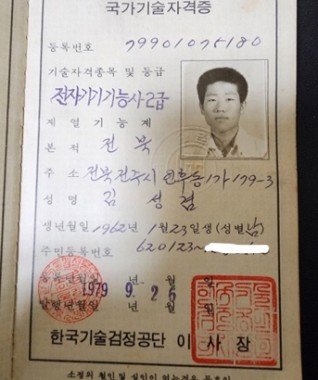 국가기술자격증
등록번호 79901075180
기술자격종목 및 등급
전자기기기능사2급
계열 기능계
본적 전북
주소 전북전주시 인후동1가 179-3
성명 김성겸
생년월일 1962년 1월 23일생 (성별 남)
주민등록번호 620123-
등록년월일 년 월 일
1979 9. 26
발행년월일 년 월 일
한국기술검정공단 이사장